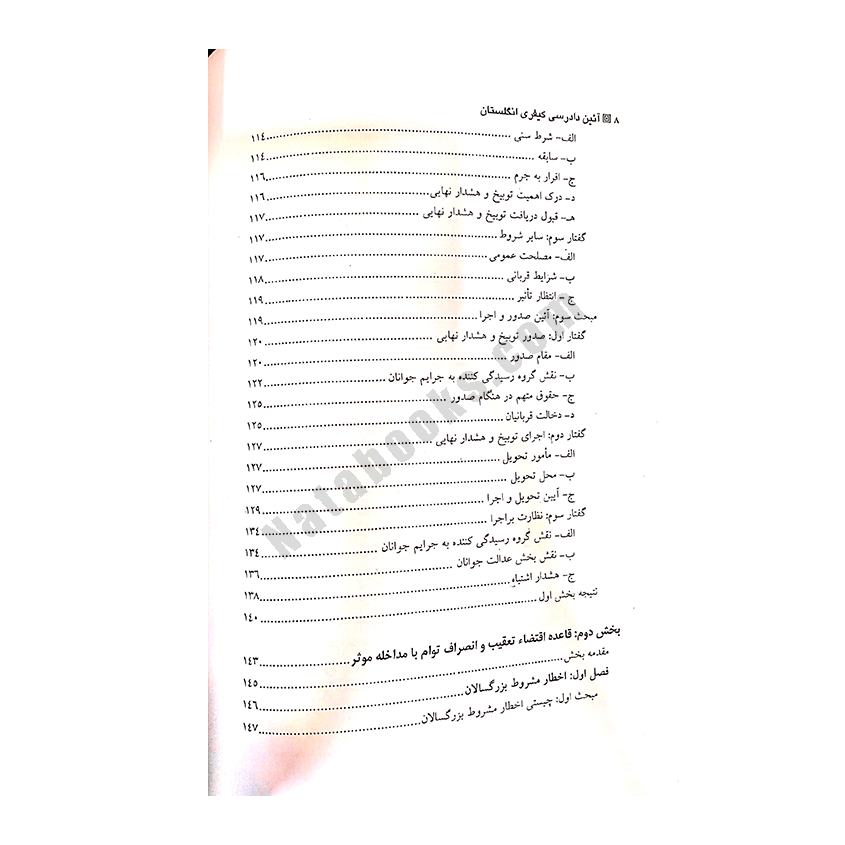 ۸ آئین دادرسی کیفری انگلستان
الف- شرط سنی ........ ۱۱۴
ب- سابقه ........ ۱۱۴
ج- اقرار به جرم ........ ۱۱۶
د- درک اهمیت توبیخ و هشدار نهایی ........ ۱۱۶
هـ- قبول دریافت توبیخ و هشدار نهایی ........ ۱۱۷
گفتار سوم: سایر شروط ........ ۱۱۷
الف- مصلحت عمومی ........ ۱۱۷
ب- شرایط قربانی ........ ۱۱۸
ج - انتظار تأثیر ........ ۱۱۹
مبحث سوم: آئین صدور و اجرا ........ ۱۱۹
گفتار اول: صدور توبیخ و هشدار نهایی ........ ۱۲۰
الف- مقام صدور ........ ۱۲۰
ب- نقش گروه رسیدگی کننده به جرایم جوانان ........ ۱۲۲
ج- حقوق متهم در هنگام صدور ........ ۱۲۵
د- دخالت قربانیان ........ ۱۲۵
گفتار دوم: اجرای توبیخ و هشدار نهایی ........ ۱۲۷
الف- مأمور تحویل ........ ۱۲۷
ب- محل تحویل ........ ۱۲۷
ج- آیین تحویل و اجرا ........ ۱۲۹
گفتار سوم: نظارت براجرا ........ ۱۳۴
الف- نقش گروه رسیدگی کننده به جرایم جوانان ........ ۱۳۴
ب- نقش بخش عدالت جوانان ........ ۱۳۶
ج- هشدار اشتباه ........ ۱۳۸
نتیجه بخش اول ........ ۱۴۰
بخش دوم: قاعده اقتضاء تعقیب و انصراف توام با مداخله موثر ........ ۱۴۳
مقدمه بخش ........ ۱۴۵
فصل اول: اخطار مشروط بزرگسالان ........ ۱۴۶
مبحث اول: چیستی اخطار مشروط بزرگسالان ........ ۱۴۷
Natabooks.com